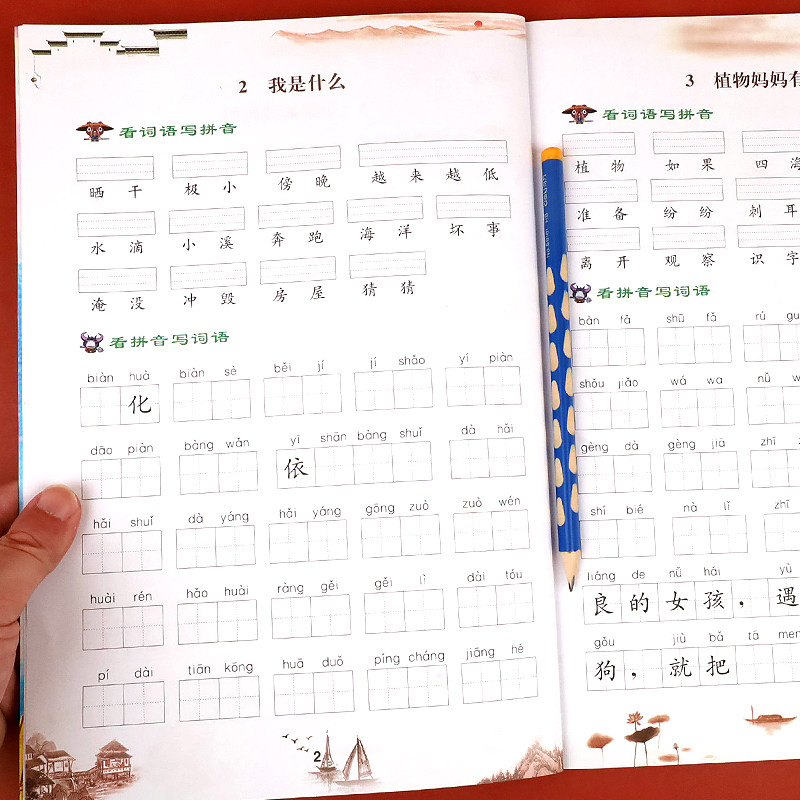 2 我是什么
看词语写拼音
晒 干 极 小 傍 晚 越 来 越 低
水 滴 小 溪 奔 跑 海 洋 坏 事
淹 没 冲 毁 房 屋 猜 猜
看拼音写词语
biàn huà biàn sè běi jí jí shǎo yí piàn
化
dāo piàn bàng wǎn yī shān bàng shuǐ dà hǎi
依
hǎi shuǐ dà yáng hǎi yáng gōng zuò zuò wén
huài rén hǎo huài ràng gěi gěi lì dài tóu
pí dài tiān kōng huā duǒ píng cháng jiāng hé
2
3 植物妈妈有
看词语写拼音
植 物 如 果 四 海
准 备 纷 纷 刺 耳
离 开 观 察 识 字
看拼音写词语
bàn fǎ shū fǎ rú gu
shǒu jiǎo wá wa nǚ w
gèng dà gèng jiā zhī
shí bié nà lǐ zhī
liáng de nǚ hái yù
良 的 女 孩 ， 遇
gǒu jiù bǎ tā men
狗 ， 就 把